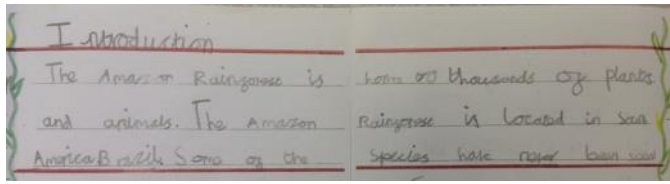 Introduction
The Amazon Rainforest is home to thousands of plants
and animals. The Amazon Rainforest is located in
America Brazil. Some of the species have never been